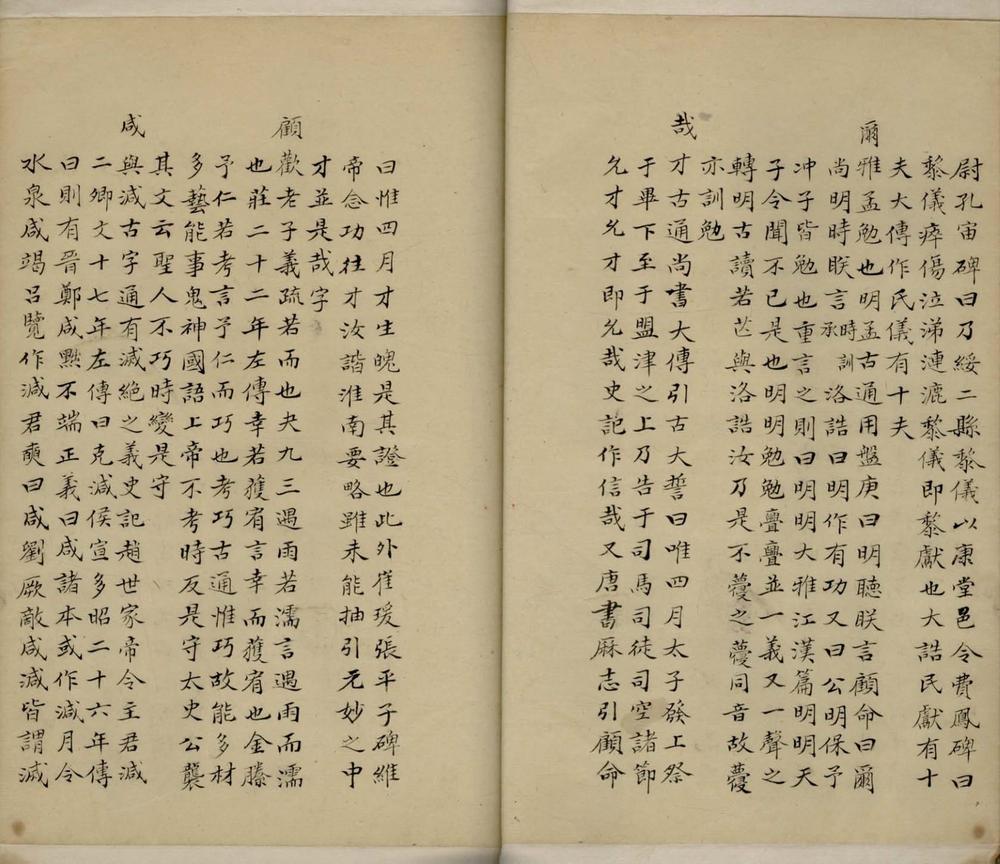 尉孔宙碑曰乃綏二縣黎儀以康堂邑令費鳳碑曰
黎儀瘁傷泣涕漣漉黎儀即黎獻也大誥民獻有十
夫大傳作氏儀有十夫
爾雅孟勉也明孟古通用盤庚曰明聽朕言顧命曰爾
尚明時朕言承時訓洛誥曰明作有功又曰公明保予
冲子皆勉也重言之則曰明明大雅江漢篇明明天
子令聞不已是也明明勉勉亹亹並一義又一聲之
轉明古讀若芒與洛誥汝乃是不蘉之蘉同音故蘉
亦訓勉
哉才古通尚書大傳引古大誓曰唯四月太子發上祭
于畢下至于盟津之上乃告于司馬司徒司空諸節
允才允才即允哉史記作信哉又唐書厤志引顧命
曰惟四月才生魄是其證也此外崔瑗張平子碑維
帝念功往才汝諧淮南要略雖未能抽引元妙之中
才並是哉字
顧歡老子義疏若而也夬九三遇雨若濡言遇雨而濡
也莊二十二年左傳幸若獲宥言幸而獲宥也金縢
予仁若考言予仁而巧也考巧古通惟巧故能多材
多藝能事鬼神國語上帝不考時反是守太史公襲
其文云聖人不巧時變是守
咸與減古字通有滅絕之義史記趙世家帝令主君減
二卿文十七年左傳曰克減侯宣多昭二十六年傳
曰則有晉鄭咸黜不端正義曰咸諸本或作減月令
水泉咸竭呂覽作減君奭曰咸劉厥敵咸減皆謂滅